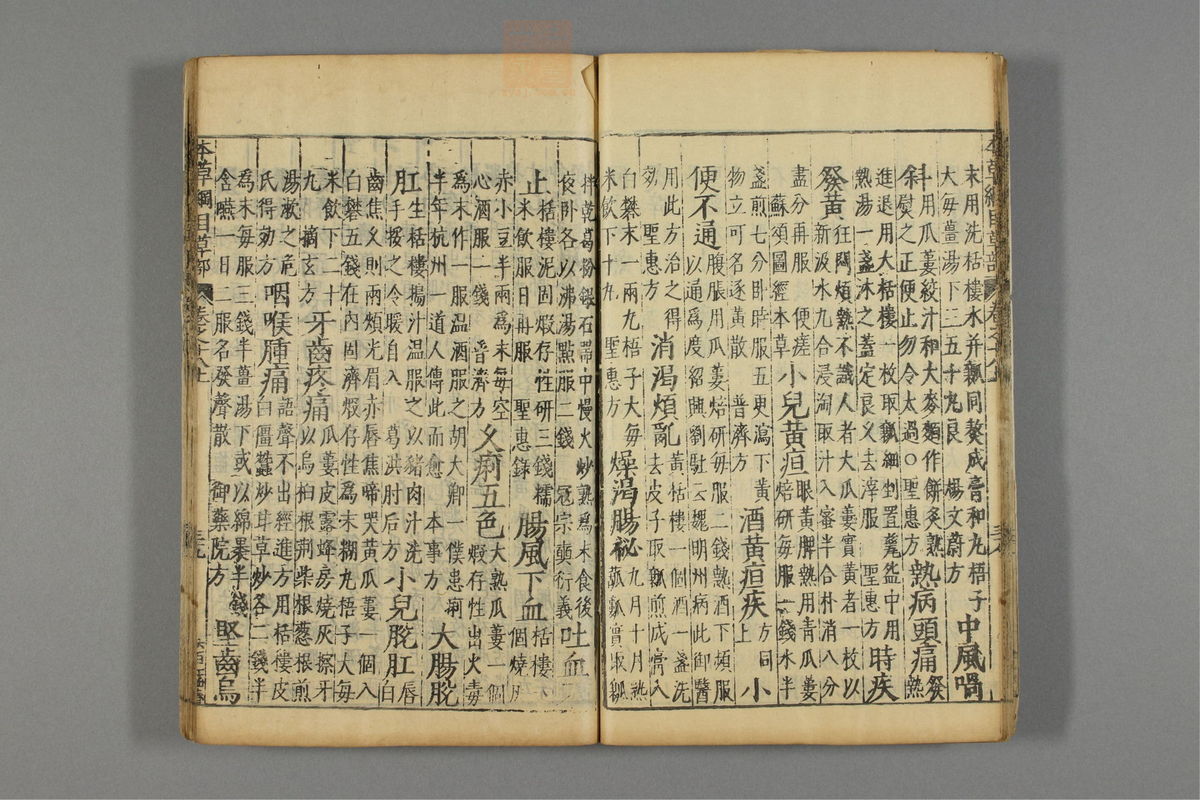 本草綱目草部 卷之十八上 三八
末用洗栝樓水并瓤同熬成膏和丸梧子
大每薑湯下三五十丸良 楊文蔚方
中風喎
斜
用瓜蔞絞汁和大麥麪作餅炙熟
熨之正便止勿令太過○聖惠方
熱病頭痛
發
熱
進退用大栝樓一枚取瓤細剉置甆盌中用
熱湯一盞沃之蓋定良久去滓服 聖惠方
時疾
發黃
狂悶煩熱不識人者大瓜蔞實黃者一枚以
新汲水九合浸淘取汁入蜜半合朴消八分
盡分再服便瘥
蘇頌圖經本草
小兒黃疸
眼黃脾熱用青瓜蔞
焙研每服一錢水半
盞煎七分臥時服五更瀉下黃
物立可名逐黃散 普濟方
酒黃疸疾
方同
上
小
便不通
腹脹用瓜蔞焙研每服二錢熱酒下頻服
以通為度紹興劉駐云魏明州病此御醫
用此方治之得
効 聖惠方
消渴煩亂
黃栝樓一個酒一盞洗
去皮子取瓤煎成膏入
白礬末一兩丸梧子大每
米飲下十丸 聖惠方
燥渴腸祕
九月十月熟
瓜蔞實取瓤
拌乾葛粉銀石器中慢火炒熟為末食後
夜臥各以沸湯點服二錢 寇宗奭衍義
吐血不
止
栝樓泥固煅存性研三錢糯
米飲服日再服 聖惠錄
腸風下血
栝樓一
個燒灰
赤小豆半兩為末每空
心酒服一錢 普濟方
久痢五色
大熟瓜蔞一個
煅存性出火毒
為末作一服溫酒服之胡大卿一僕患痢
半年杭州一道人傳此而愈 本事方
大腸脫
肛
生栝樓搗汁溫服之以豬肉汁洗
手挼之令暖自入 葛洪肘后方
小兒脫肛
唇
白
齒焦久則兩頰光眉赤唇焦啼哭黃瓜蔞一個入
白礬五錢在內固濟煅存性為末糊丸梧子大每
米飲下二十
丸 摘玄方
牙齒疼痛
瓜蔞皮露蜂房燒灰擦牙
以烏桕根荊柴根蔥根煎
湯漱之危
氏得効方
咽喉腫痛
語聲不出經進方用栝樓皮
白僵蠶炒甘草炒各二錢半
為末每服三錢半薑湯下或以綿裹半錢
含嚥一日二服名發聲散 御藥院方
堅齒烏
本草綱目草部 卷之十八上 三九